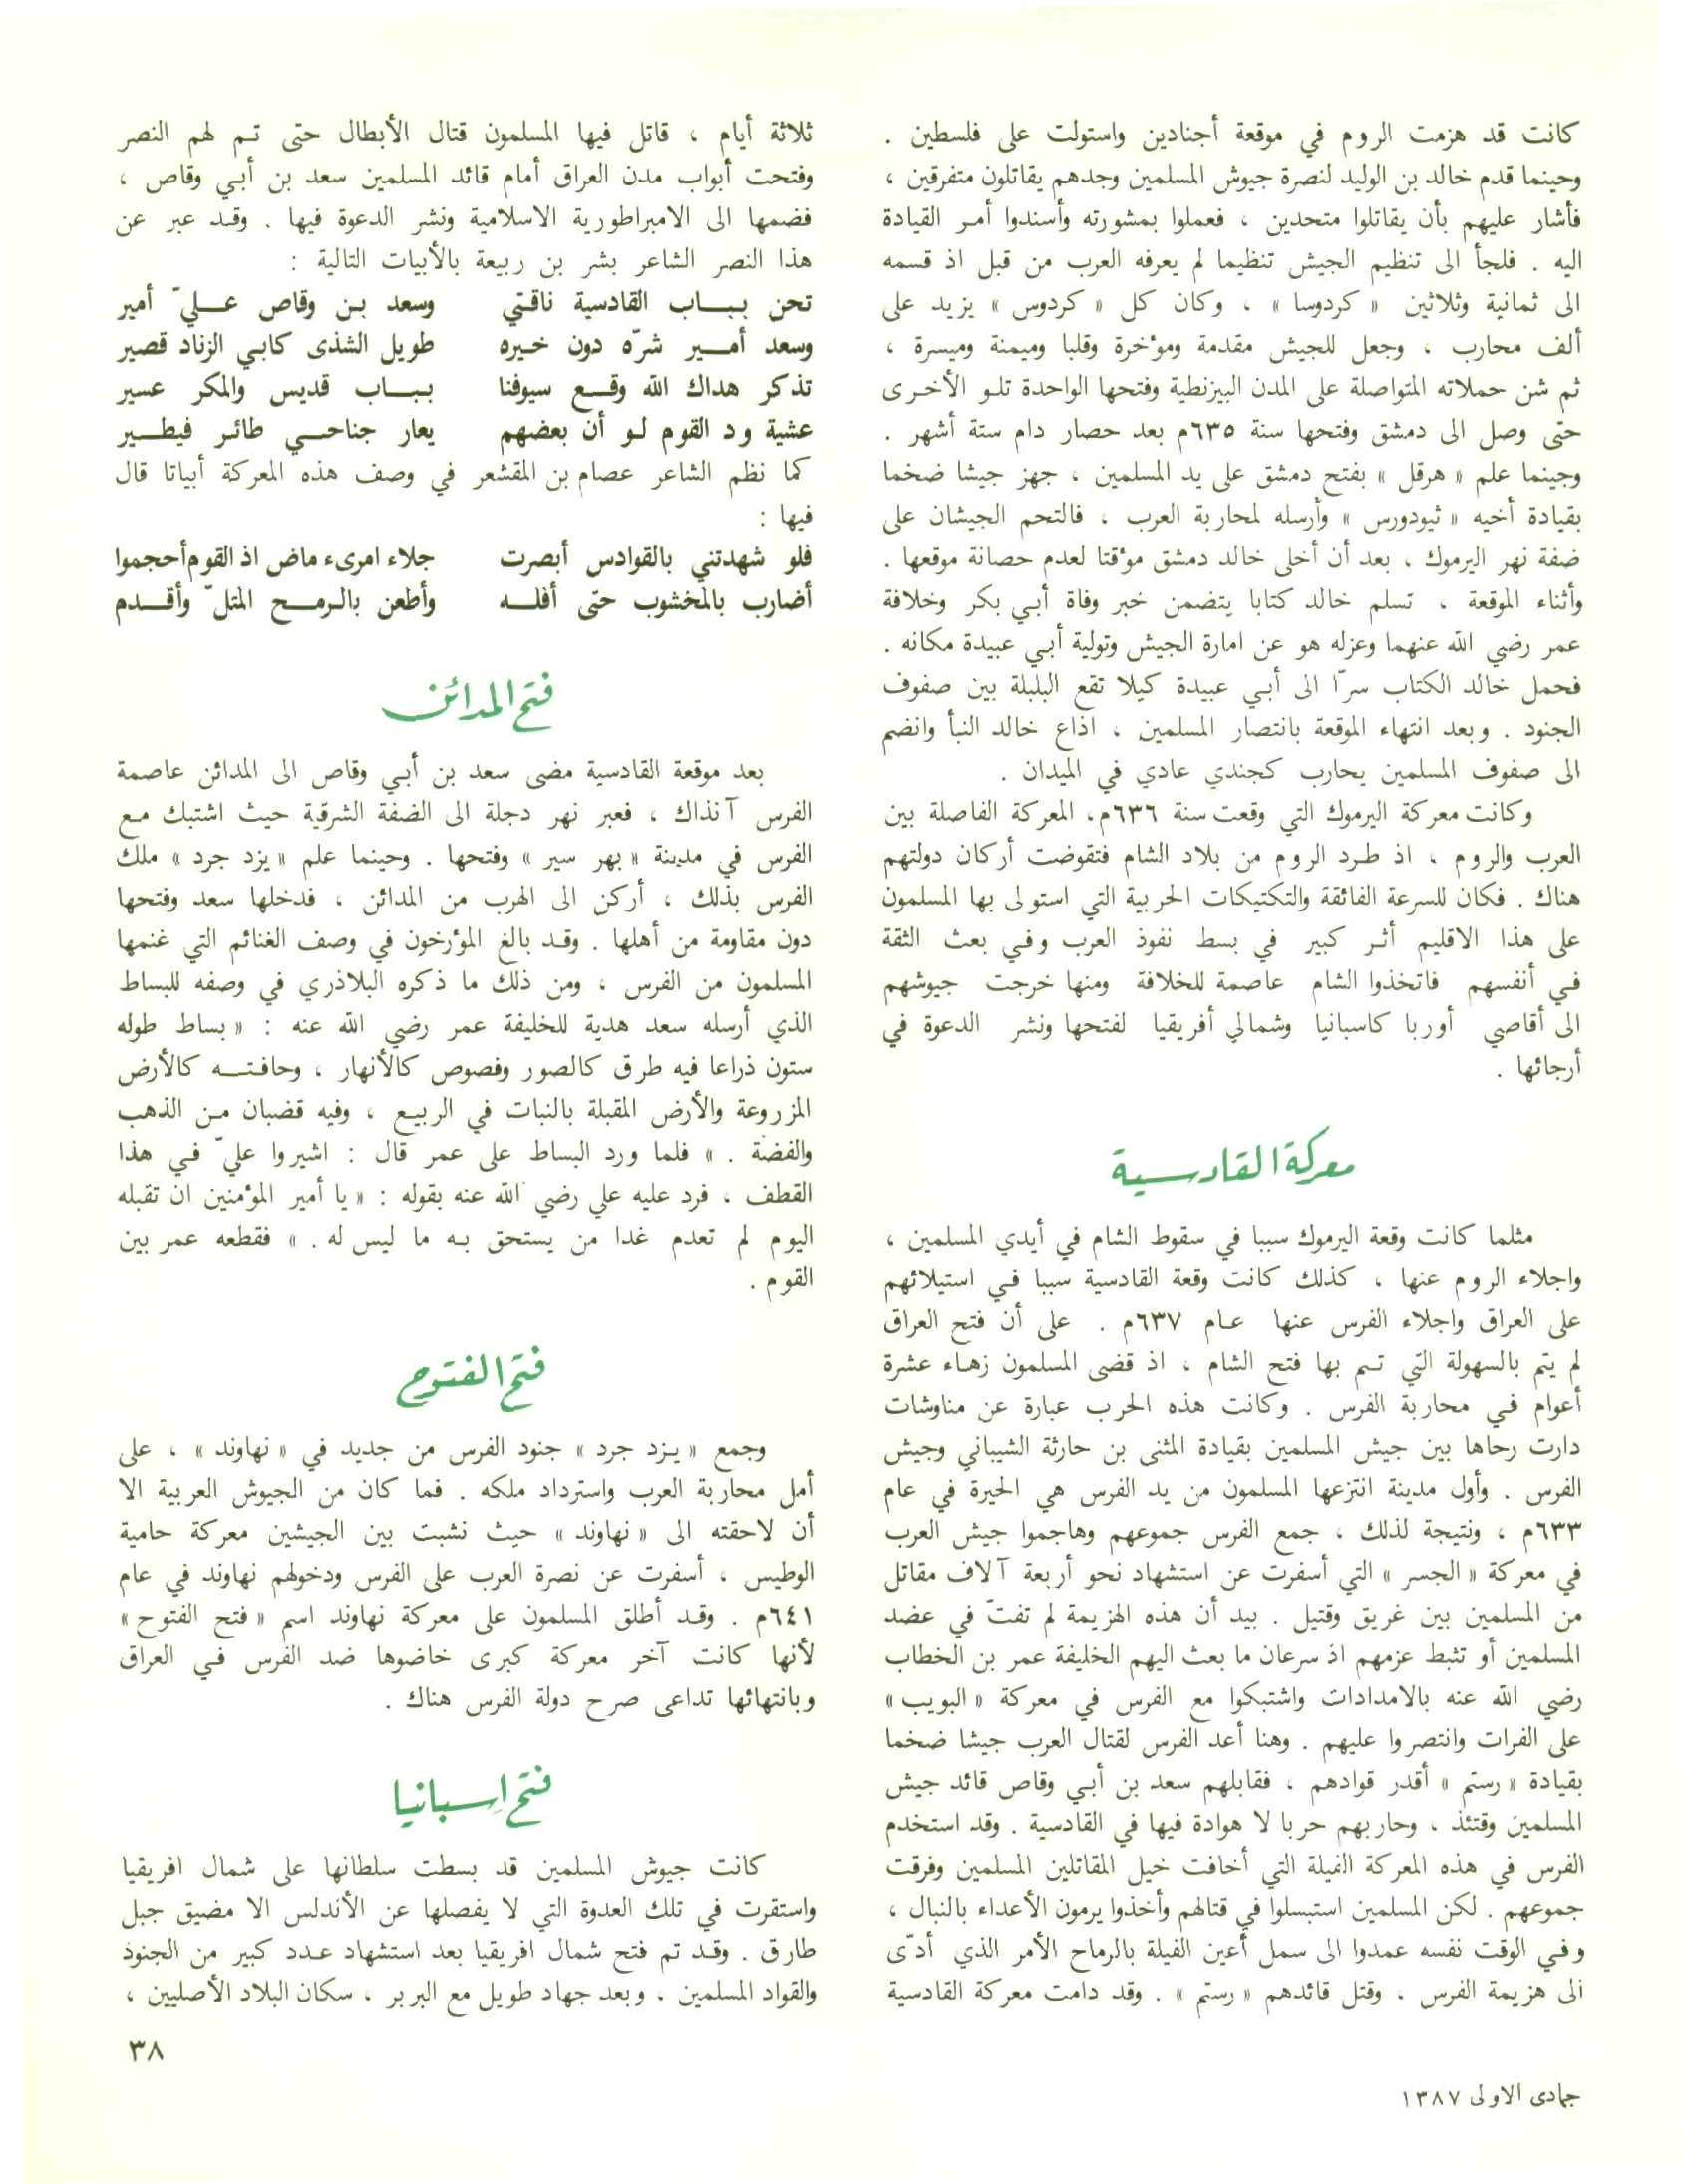 كانت قد هزمت الروم في موقعة أجنادين واستولت على فلسطين .
وحينما قدم خالد بن الوليد لنصرة جيوش المسلمين وجدهم يقاتلون متفرقين ،
فأشار عليهم بأن يقاتلوا متحدين ، فعملوا بمشورته وأسندوا أمر القيادة
اليه . فلجأ الى تنظيم الجيش تنظيما لم يعرفه العرب من قبل اذ قسمه
الى ثمانية وثلاثين « كردوسا » ، وكان كل « كردوس » يزيد على
ألف محارب ، وجعل للجيش مقدمة ومؤخرة وقلبا وميمنة وميسرة ،
ثم شن حملاته المتواصلة على المدن البيزنطية وفتحها الواحدة تلو الأخرى
حتى وصل الى دمشق وفتحها سنة ٦٣٥م بعد حصار دام ستة أشهر .
وحينما علم « هرقل » بفتح دمشق على يد المسلمين ، جهز جيشا ضخما
بقيادة أخيه « ثيودورس » وأرسله لمحاربة العرب ، فالتحم الجيشان على
ضفة نهر اليرموك ، بعد أن أخلى خالد دمشق مؤقتا لعدم حصانة موقعها .
وأثناء الموقعة ، تسلم خالد كتابا يتضمن خبر وفاة أبي بكر وخلافة
عمر رضي الله عنهما وعزله هو عن امارة الجيش وتولية أبي عبيدة مكانه .
فحمل خالد الكتاب سرّا الى أبي عبيدة كيلا تقع البلبلة بين صفوف
الجنود . وبعد انتهاء الموقعة بانتصار المسلمين ، اذاع خالد النبأ وانضم
الى صفوف المسلمين يحارب كجندي عادي في الميدان .
وكانت معركة اليرموك التي وقعت سنة ٦٣٦م، المعركة الفاصلة بين
العرب والروم ، اذ طرد الروم من بلاد الشام فتقوضت أركان دولتهم
هناك . فكان للسرعة الفائقة والتكتيكات الحربية التي استولى بها المسلمون
على هذا الاقليم أثر كبير في بسط نفوذ العرب وفي بعث الثقة
في أنفسهم فاتخذوا الشام عاصمة للخلافة ومنها خرجت جيوشهم
الى أقاصي أوربا كاسبانيا وشمالي أفريقيا لفتحها ونشر الدعوة في
أرجائها .
معركة القادسية
مثلما كانت وقعة اليرموك سببا في سقوط الشام في أيدي المسلمين ،
واجلاء الروم عنها ، كذلك كانت وقعة القادسية سببا في استيلائهم
على العراق واجلاء الفرس عنها عام ٦٣٧م . على أن فتح العراق
لم يتم بالسهولة التي تم بها فتح الشام ، اذ قضى المسلمون زهاء عشرة
أعوام في محاربة الفرس . وكانت هذه الحرب عبارة عن مناوشات
دارت رحاها بين جيش المسلمين بقيادة المثنى بن حارثة الشيباني وجيش
الفرس . وأول مدينة انتزعها المسلمون من يد الفرس هي الحيرة في عام
٦٣٣م ، ونتيجة لذلك ، جمع الفرس جموعهم وهاجموا جيش العرب
في معركة « الجسر » التي أسفرت عن استشهاد نحو أربعة آلاف مقاتل
من المسلمين بين غريق وقتيل . بيد أن هذه الهزيمة لم تفتّ في عضد
المسلمين أو تثبط عزمهم اذ سرعان ما بعث اليهم الخليفة عمر بن الخطاب
رضي الله عنه بالامدادات واشتبكوا مع الفرس في معركة « البويب »
على الفرات وانتصروا عليهم . وهنا أعد الفرس لقتال العرب جيشا ضخما
بقيادة « رستم » أقدر قوادهم ، فقابلهم سعد بن أبي وقاص قائد جيش
المسلمين وقتئذ ، وحاربهم حربا لا هوادة فيها في القادسية . وقد استخدم
الفرس في هذه المعركة الفيلة التي أخافت خيل المقاتلين المسلمين وفرقت
جموعهم . لكن المسلمين استبسلوا في قتالهم وأخذوا يرمون الأعداء بالنبال ،
وفي الوقت نفسه عمدوا الى سمل أعين الفيلة بالرماح الأمر الذي أدّى
الى هزيمة الفرس ، وقتل قائدهم « رستم » . وقد دامت معركة القادسية
ثلاثة أيام ، قاتل فيها المسلمون قتال الأبطال حتى تم لهم النصر
وفتحت أبواب مدن العراق أمام قائد المسلمين سعد بن أبي وقاص ،
فضمها الى الامبراطورية الاسلامية ونشر الدعوة فيها . وقد عبر عن
هذا النصر الشاعر بشر بن ربيعة بالأبيات التالية :
تحن بباب القادسية ناقتي وسعد بن وقاص عليّ أمير
وسعد أمير شرّه دون خيره طويل الشذى كابي الزناد قصير
تذكر هداك الله وقع سيوفنا بباب قديس والمكر عسير
عشية ود القوم لو أن بعضهم يعار جناحي طائر فيطير
كما نظم الشاعر عصام بن المقشعر في وصف هذه المعركة أبياتا قال
فيها :
فلو شهدتني بالقوادس أبصرت جلاء امرىء ماض اذ القوم أحجموا
أضارب بالمخشوب حتى أفله وأطعن بالرمح المتلّ وأقدم
فتح المدائن
بعد موقعة القادسية مضى سعد بن أبي وقاص الى المدائن عاصمة
الفرس آنذاك ، فعبر نهر دجلة الى الضفة الشرقية حيث اشتبك مع
الفرس في مدينة « بهر سير » وفتحها . وحينما علم « يزد جرد » ملك
الفرس بذلك ، أركن الى الهرب من المدائن ، فدخلها سعد وفتحها
دون مقاومة من أهلها . وقد بالغ المؤرخون في وصف الغنائم التي غنمها
المسلمون من الفرس ، ومن ذلك ما ذكره البلاذري في وصفه للبساط
الذي أرسله سعد هدية للخليفة عمر رضي الله عنه : « بساط طوله
ستون ذراعا فيه طرق كالصور وفصوص كالأنهار ، وحافته كالأرض
المزروعة والأرض المقبلة بالنبات في الربيع ، وفيه قضبان من الذهب
والفضة . » فلما ورد البساط على عمر قال : اشيروا عليّ في هذا
القطف ، فرد عليه علي رضي الله عنه بقوله : « يا أمير المؤمنين ان تقبله
اليوم لم تعدم غدا من يستحق به ما ليس له . » فقطعه عمر بين
القوم .
فتح الفتوح
وجمع « يزد جرد » جنود الفرس من جديد في « نهاوند » ، على
أمل محاربة العرب واسترداد ملكه . فما كان من الجيوش العربية الا
أن لاحقته الى « نهاوند » حيث نشبت بين الجيشين معركة حامية
الوطيس ، أسفرت عن نصرة العرب على الفرس ودخولهم نهاوند في عام
٦٤١م . وقد أطلق المسلمون على معركة نهاوند اسم « فتح الفتوح »
لأنها كانت آخر معركة كبرى خاضوها ضد الفرس في العراق
وبانتهائها تداعى صرح دولة الفرس هناك .
فتح إسبانيا
كانت جيوش المسلمين قد بسطت سلطانها على شمال افريقيا
واستقرت في تلك العدوة التي لا يفصلها عن الأندلس الا مضيق جبل
طارق . وقد تم فتح شمال افريقيا بعد استشهاد عدد كبير من الجنود
والقواد المسلمين ، وبعد جهاد طويل مع البربر ، سكان البلاد الأصليين ،
٣٨
جمادى الاولى ١٣٨٧